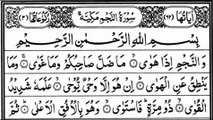 اٰيَاتُهَا (۶۲) سُوْرَةُ النَّجْمِ مَكِّيَّةٌ رُكُوْعَاتُهَا (۳)
بِسْمِ اللهِ الرَّحْمٰنِ الرَّحِيْمِ
وَالنَّجْمِ اِذَا هَوٰى مَا ضَلَّ صَاحِبُكُمْ وَمَا غَوٰى وَمَا
يَنْطِقُ عَنِ الْهَوٰى اِنْ هُوَ اِلَّا وَحْىٌ يُّوْحٰى عَلَّمَهٗ شَدِيْدُ
الْقُوٰى ذُوْ مِرَّةٍ فَاسْتَوٰى وَهُوَ بِالْاُفُقِ الْاَعْلٰى ثُمَّ